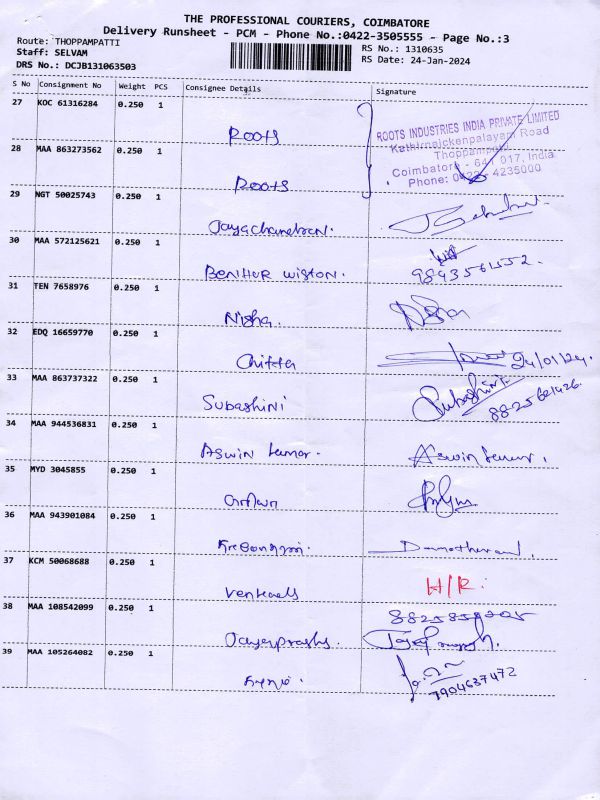 THE PROFESSIONAL COURIERS, COIMBATORE
Delivery Runsheet - PCM - Phone No.:0422-3505555 - Page No.:3
Route: THOPPAMPATTI
Staff: SELVAM
DRS No.: DCJB131063503
RS No.: 1310635
RS Date: 24-Jan-2024
S No Consignment No Weight PCS Consignee Details Signature
27 KOC 61316284 0.250 1
Roots
ROOTS INDUSTRIES INDIA PRIVATE LIMITED
Kathirnaickenpalayam Road
Thoppampatti
Coimbatore - 641 017, India
Phone: 0422 - 4235000
28 MAA 863273562 0.250 1
Roots
29 NGT 50025743 0.250 1
Jayachandran.
30 MAA 572125621 0.250 1
BENHUR WISTON.
9843561552.
31 TEN 7658976 0.250 1
Nisha.
32 EDQ 16659770 0.250 1
Chitta
24/01/24.
33 MAA 863737322 0.250 1
SUBASHINI
Subashini
34 MAA 944536831 0.250 1
ASWIN kumar.
Aswin kumar.
35 MYD 3045855 0.250 1
36 MAA 943901084 0.250 1
37 KCM 50068688 0.250 1
H/R.
38 MAA 108542099 0.250 1
Jayaprakash.
39 MAA 105264082 0.250 1
7904637472